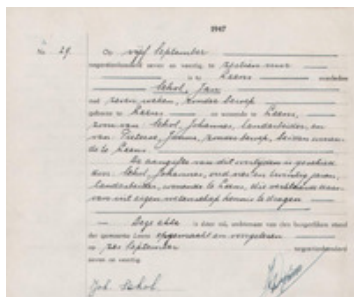 1947
No. 29. Op vijf September
negentienhonderd zeven en veertig, te zestien uur
is te Leens overleden
Schol, Jan
oud zeven weken, zonder beroep
geboren te Leens en wonende te Leens,
zoon van Schol, Johannes, landarbeider, en
van Pieterse, zonder beroep, beiden wonen-
de te Leens.
De aangifte van dit overlijden is geschied
door Schol, Johannes, oud en twintig jaren,
landarbeider, wonende te Leens, die verklaarde daar-
van uit eigen wetenschap kennis te dragen
Deze akte is door mij, ambtenaar van den burgerlijken stand
der gemeente Leens opgemaakt en voorgelezen
op zes September negentienhonderd
zeven en veertig.
Joh Schol